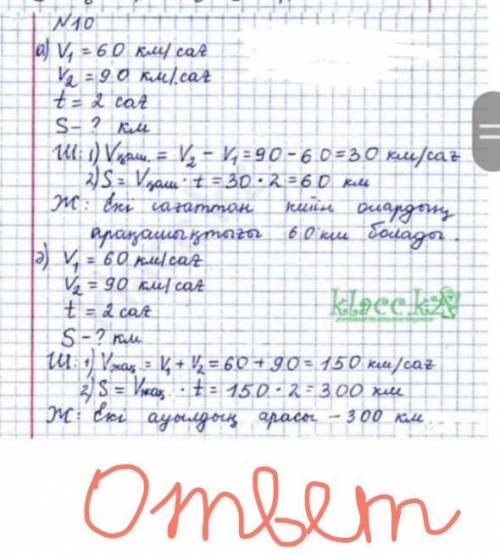 №10
а) V₁ = 60 км/сағ
V₂ = 90 км/сағ
t = 2 сағ
S - ? км
Ш: 1) Vқаш. = V₂ - V₁ = 90 - 60 = 30 км/сағ
2) S = Vқаш · t = 30 · 2 = 60 км
Ж: Екі сағаттан кейін олардың
арақашықтығы 60 км болады.
ә) V₁ = 60 км/сағ
V₂ = 90 км/сағ
t = 2 сағ
klacc.kz
S - ? км
Ш: 1) Vжақ. = V₁ + V₂ = 60 + 90 = 150 км/сағ
2) S = Vжақ · t = 150 · 2 = 300 км
Ж: Екі ауылдың арасы - 300 км.
Ответ